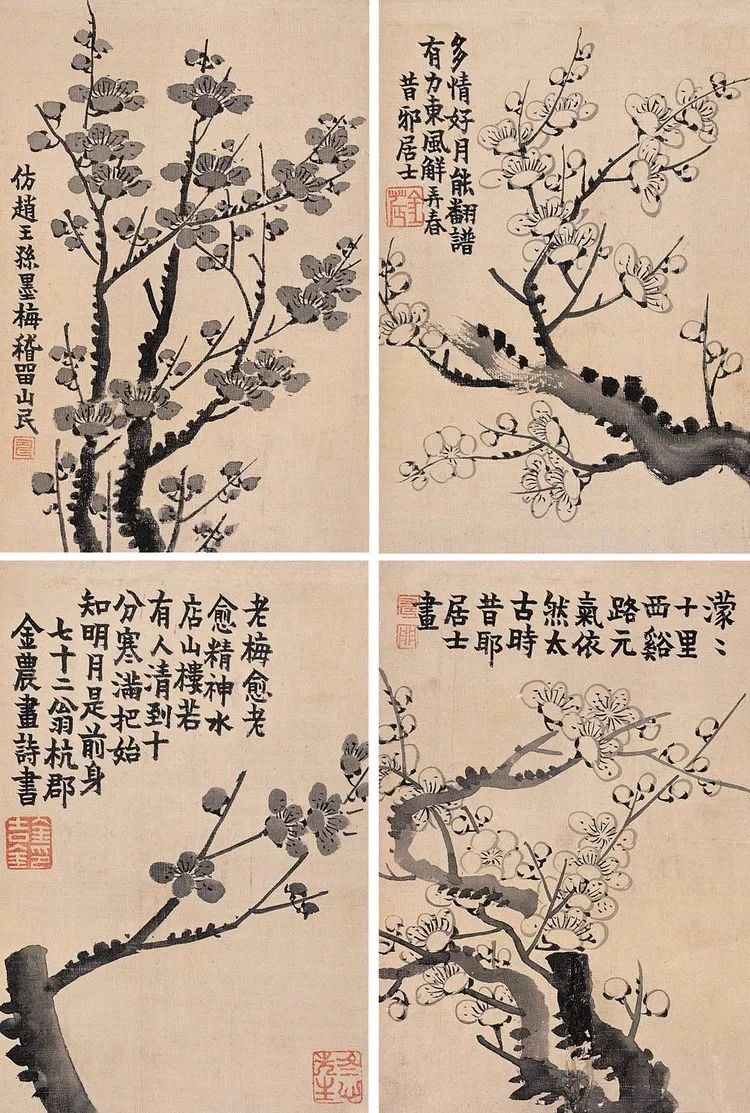 仿趙王孫墨梅稽留山民
多情好月能翻譜
有力東風解弄春
昔邪居士
老梅愈老
愈精神水
店山樓若
有人清到十
分寒滿把始
知明月是前身
七十二翁杭郡
金農畫詩書
冬心
先生
濛〻
十里
西谿
路元
氣依
然太
古時
昔耶
居士
畫